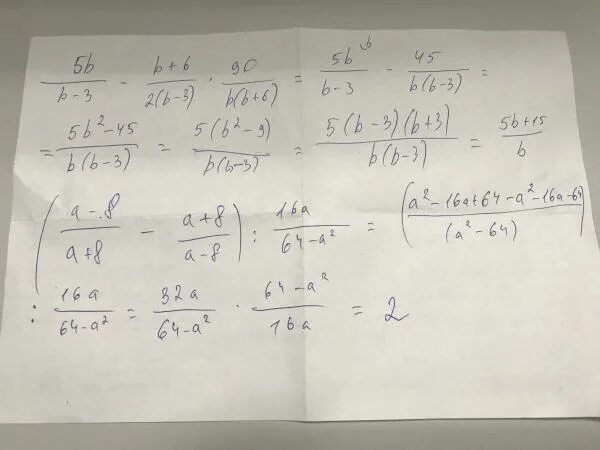 5b/(b-3) - (b+6)/(2(b-3)) · 90/(b(b+6)) = 5b^b/(b-3) - 45/(b(b-3)) =
= (5b²-45)/(b(b-3)) = 5(b²-9)/(b(b-3)) = 5(b-3)(b+3)/(b(b-3)) = (5b+15)/b
((a-8)/(a+8) - (a+8)/(a-8)) : 16a/(64-a²) = ((a²-16a+64-a²-16a-64)/(a²-64))
: 16a/(64-a²) = 32a/(64-a²) · (64-a²)/16a = 2